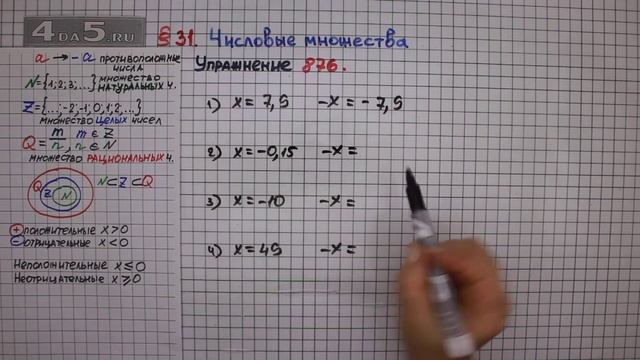 4 ДА 5.RU
§ 31. Числовые множества
Упражнение 876.
a → -a противоположные числа
N={1; 2; 3; ...} множество натуральных ч.
Z={...; -2; -1; 0; 1; 2; ...}
множество целых чисел
Q = m/n, m ∈ Z, n ∈ N
множество рациональных ч.
Q Z N N ⊂ Z ⊂ Q
+ положительные x > 0
− отрицательные x < 0
Неположительные x ≤ 0
Неотрицательные x ≥ 0
1) x = 7,9 -x = - 7,9
2) x = -0,15 -x =
3) x = -10 -x =
4) x = 49 -x =